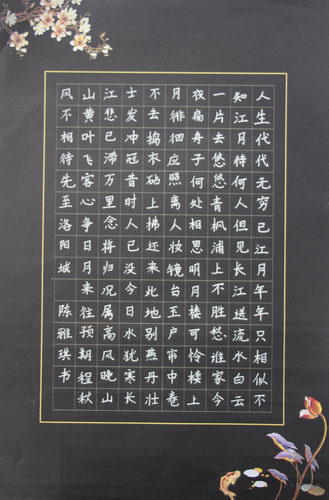 人生代代无穷已江月年年只相似不
知江月待何人但见长江送流水白云
一片去悠悠青枫浦上不胜愁谁家今
夜扁舟子何处相思明月楼可怜楼上
月徘徊应照离人妆镜台玉户帘中卷
不去捣衣砧上拂还来此地别燕丹壮
士发冲冠昔时人已没今日水犹寒长
江悲已滞万里念将归况属高风晚山
山黄叶飞客心争日月来往预期程秋
风不相待先至洛阳城 陈雅琪书